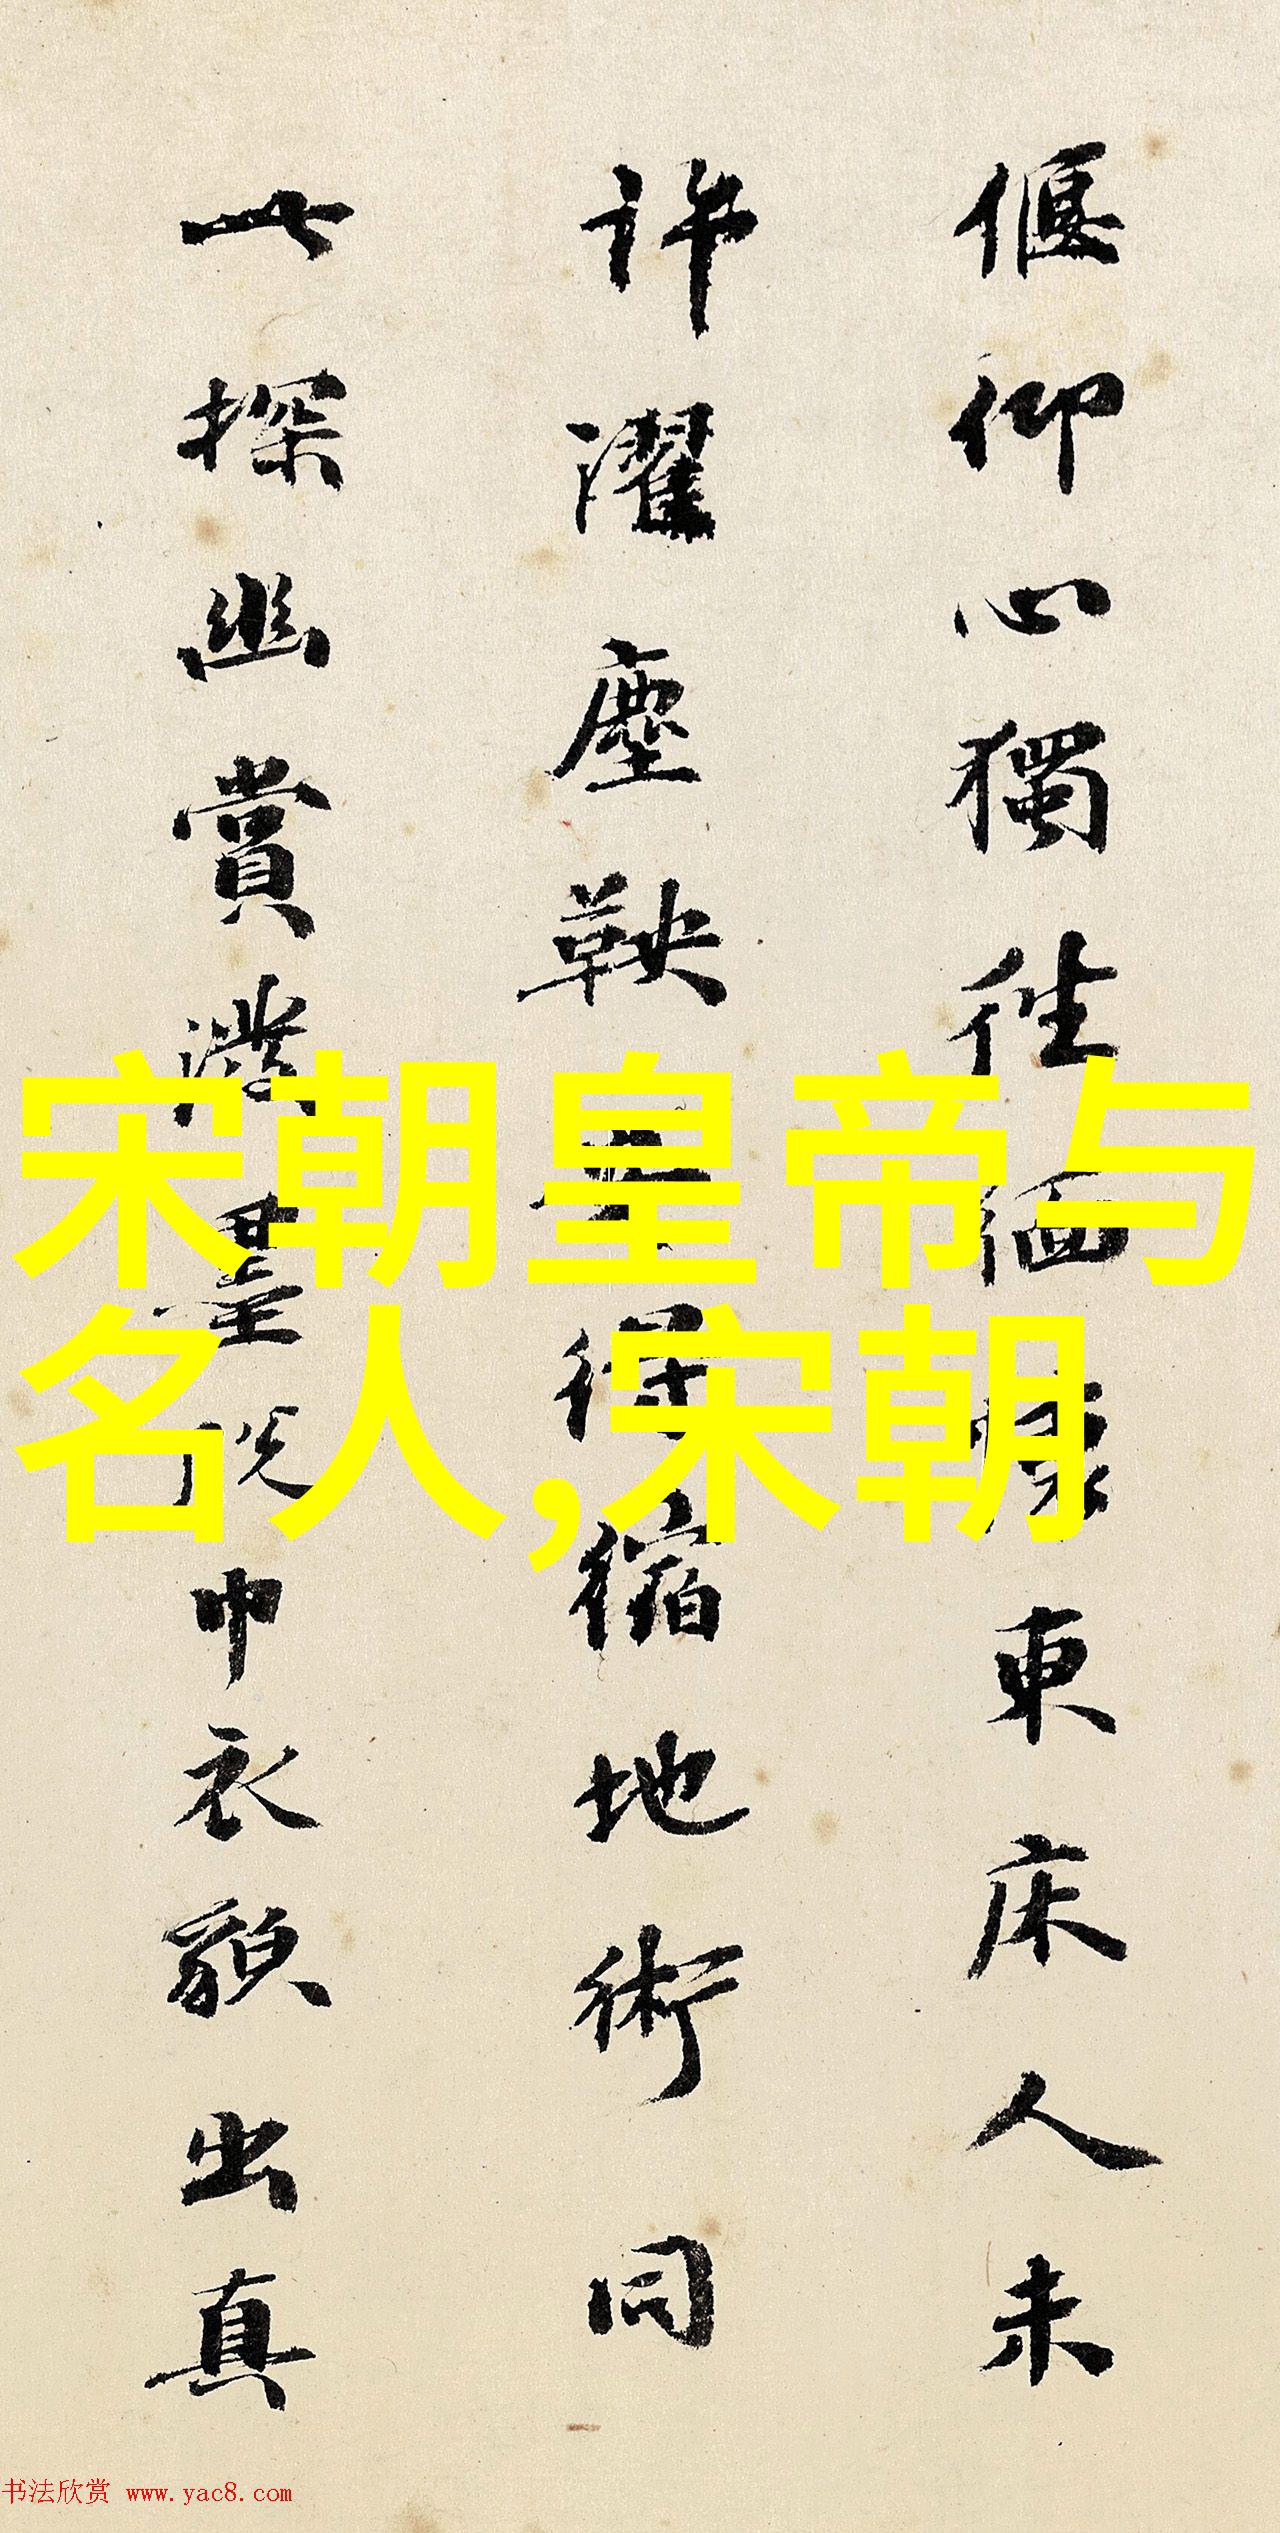 偃仰心獨往緬懷東床人未
許濯塵鞅 得縮地術同
一探幽賞濮 俗巾衣貌出真
宋朝皇帝与
名人,宋朝
书法欣赏 www.yac8.com